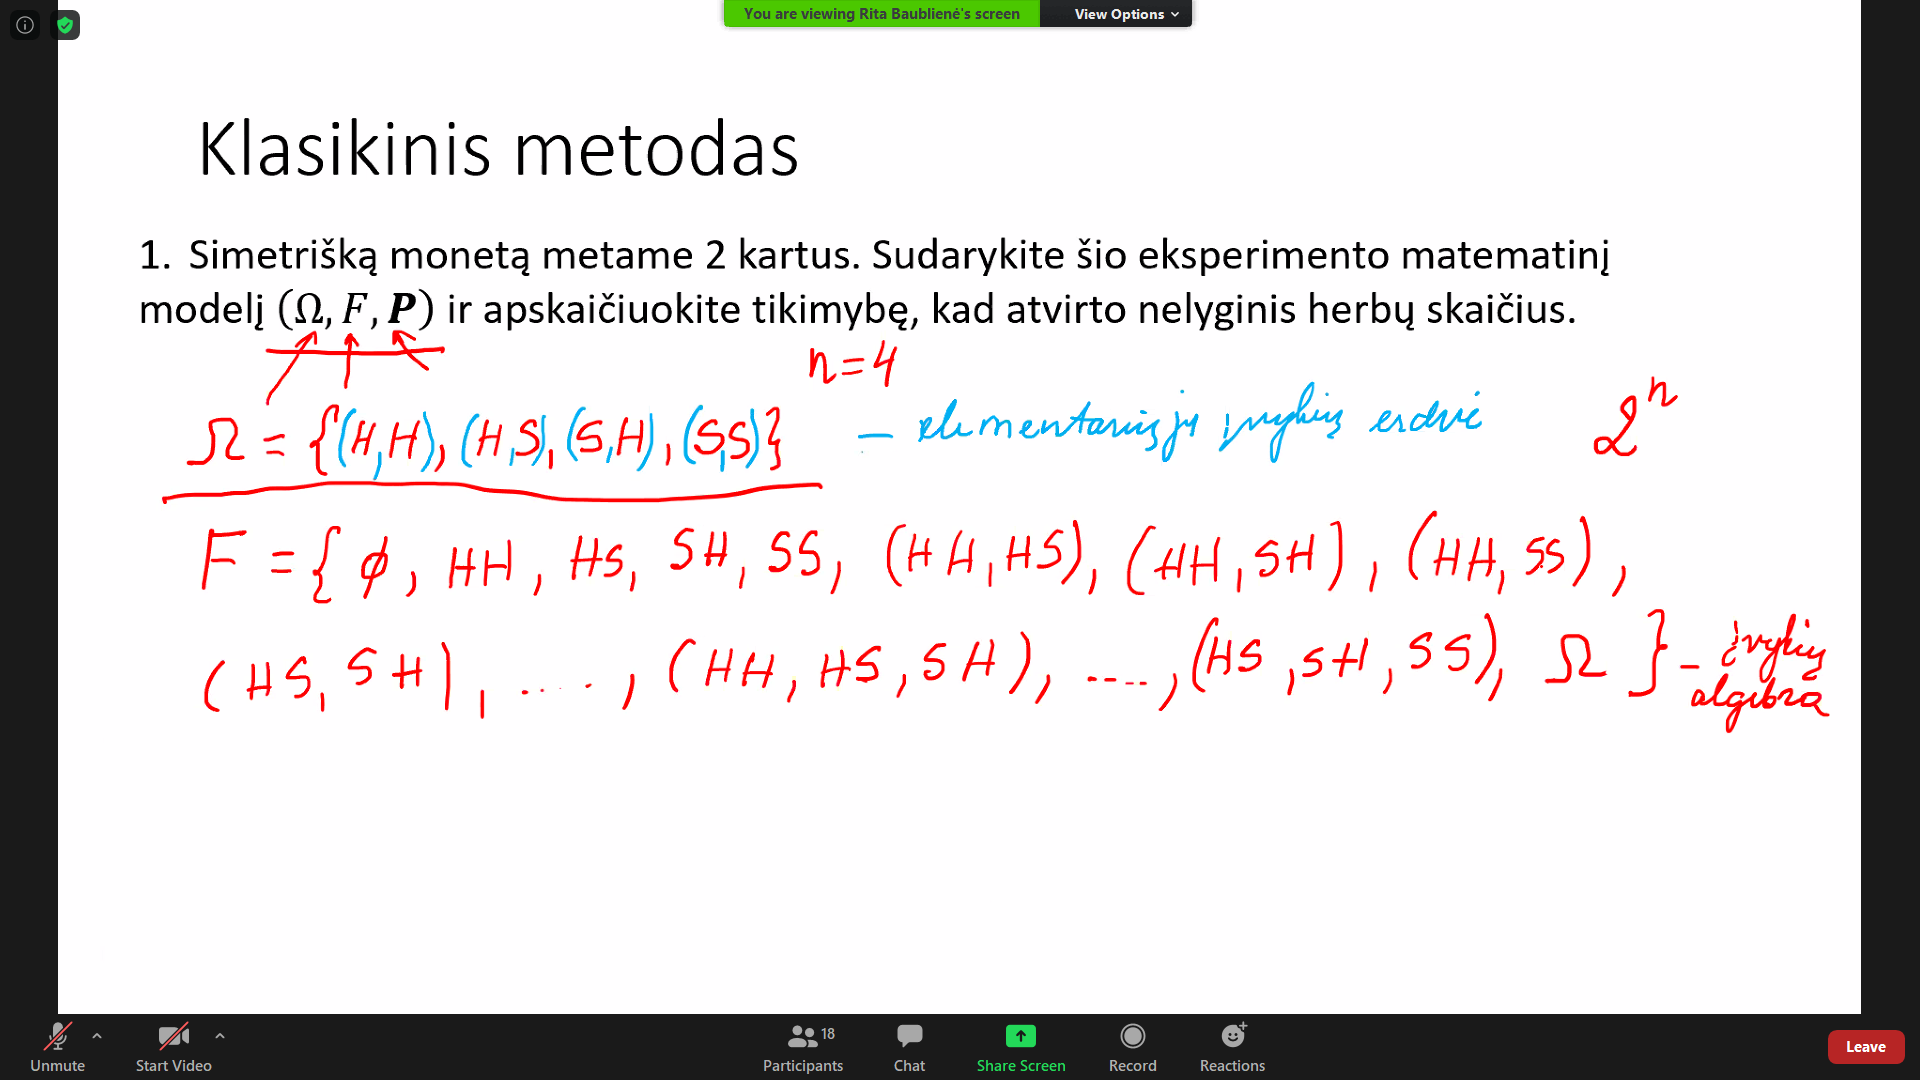 You are viewing Rita Baublienė's screen View Options
Klasikinis metodas
1. Simetrišką monetą metame 2 kartus. Sudarykite šio eksperimento matematinį
modelį (Ω, F, P) ir apskaičiuokite tikimybę, kad atvirto nelyginis herbų skaičius.
n=4
Ω = {(H,H), (H,S), (S,H), (S,S)} – elementariųjų įvykių erdvė 2ⁿ
F = { ∅, HH, HS, SH, SS, (HH, HS), (HH, SH), (HH, SS),
(HS, SH), ....., (HH, HS, SH), ...., (HS, SH, SS), Ω } – įvykių
algebra
Unmute Start Video Participants 18 Chat Share Screen Record Reactions Leave